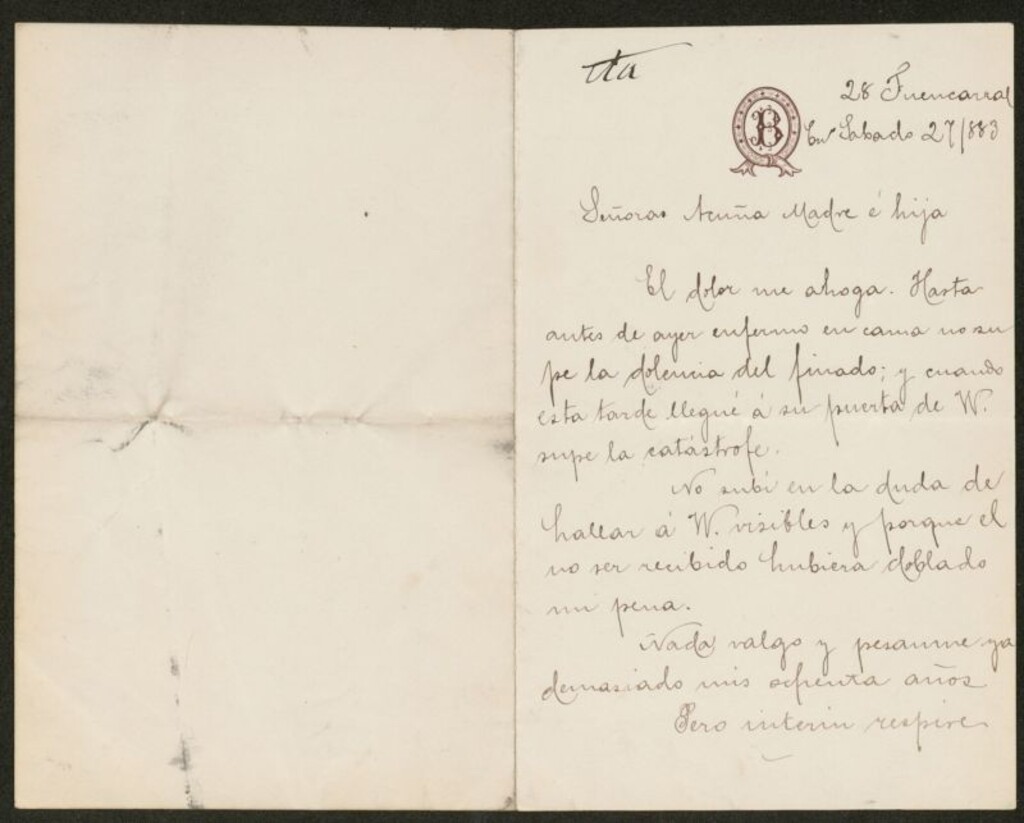 cta
28 Fuencarral
B
En Sabado 27/883
Señoras Acuña Madre é hija
El dolor me ahoga. Hasta
antes de ayer enfermo en cama no su
pe la dolencia del finado; y cuando
esta tarde llegué á su puerta de W.
supe la catástrofe.
No subi en la duda de
hallar á W. visibles y porque el
no ser recibido hubiera doblado
mi pena.
Nada valgo y pesanme ya
demasiado mis ochenta años
Pero interin respire